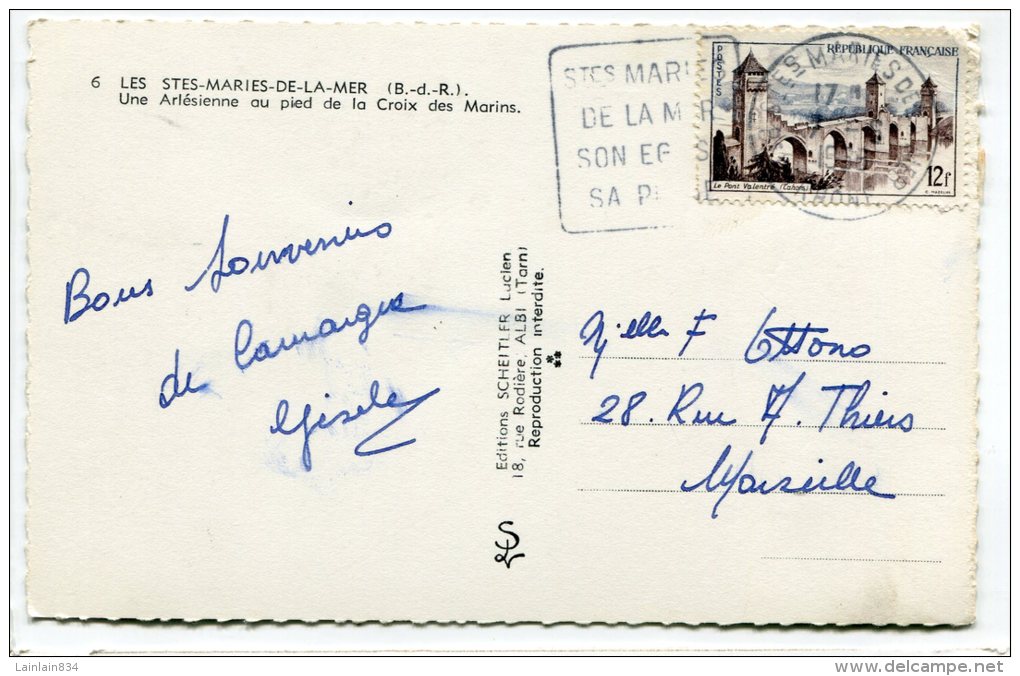 6 LES STES-MARIES-DE-LA-MER (B.-d.-R.).
Une Arlésienne au pied de la Croix des Marins.
STES MARIE
DE LA M R
SON EG S
SA P E
POSTES
RÉPUBLIQUE FRANÇAISE
Le Pont Valentré (Cahors)
12f
Bons souvenirs
de Camargue
Gisele
Editions SCHEITLER Lucien
18, rue Rodière, ALBI (Tarn)
Reproduction interdite.
Mlle F Ottono
28. Rue A. Thiers
Marseille
Lainlain834
www.delcampe.net